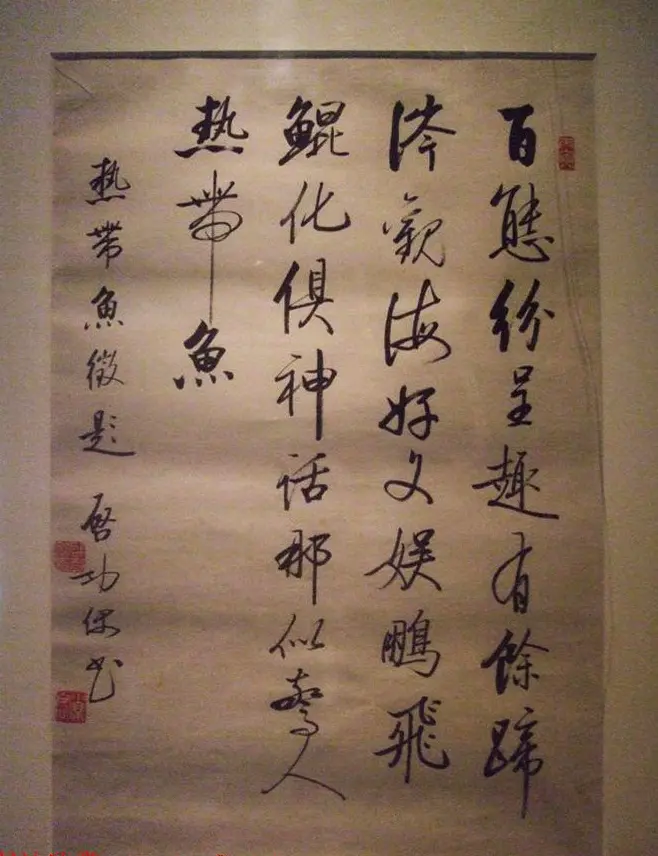 百態紛呈趣有餘蹄
涔觀海好文娛鵬飛
鯤化俱神話那似驚人
熱帶魚
熱帶魚徵題 啓功書